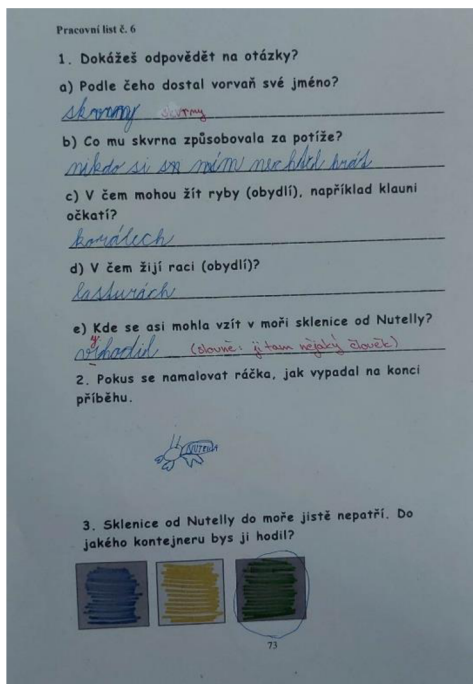 Pracovní list č. 6
1. Dokážeš odpovědět na otázky?
a) Podle čeho dostal vorvaň své jméno?
skvrny skvrny
b) Co mu skvrna způsobovala za potíže?
nikdo si s ním nechtěl hrát
c) V čem mohou žít ryby (obydlí), například klauni
očkatí?
korálech
d) V čem žijí raci (obydlí)?
lasturách
e) Kde se asi mohla vzít v moři sklenice od Nutelly?
vyhodil (slovně: ji tam nějaký člověk)
2. Pokus se namalovat ráčka, jak vypadal na konci
příběhu.
NUTELLA
3. Sklenice od Nutelly do moře jistě nepatří. Do
jakého kontejneru bys ji hodil?
73